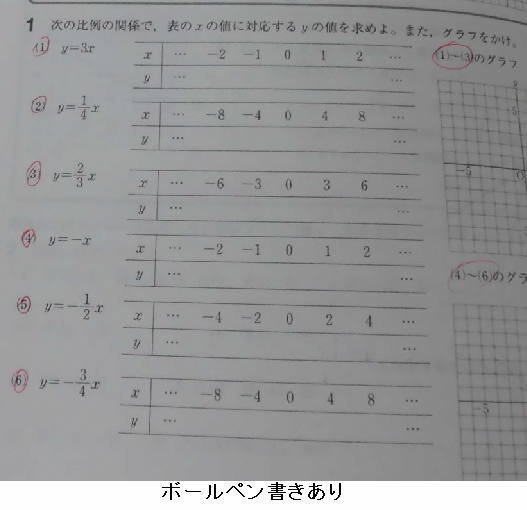 1 次の比例の関係で，表のxの値に対応するyの値を求めよ。また，グラフをかけ。
(1) y=3x
x … −2 −1 0 1 2 …
y … …
(1)～(3)のグラフ
(2) y=1/4 x
x … −8 −4 0 4 8 …
y … …
(3) y=2/3 x
x … −6 −3 0 3 6 …
y …
(4) y=−x
x … −2 −1 0 1 2 …
y … …
(5) y=−1/2 x
x … −4 −2 0 2 4 …
y … …
(6) y=−3/4 x
x … −8 −4 0 4 8 …
y … …
y
5
−5 O
(4)～(6)のグラ
−5
ボールペン書きあり